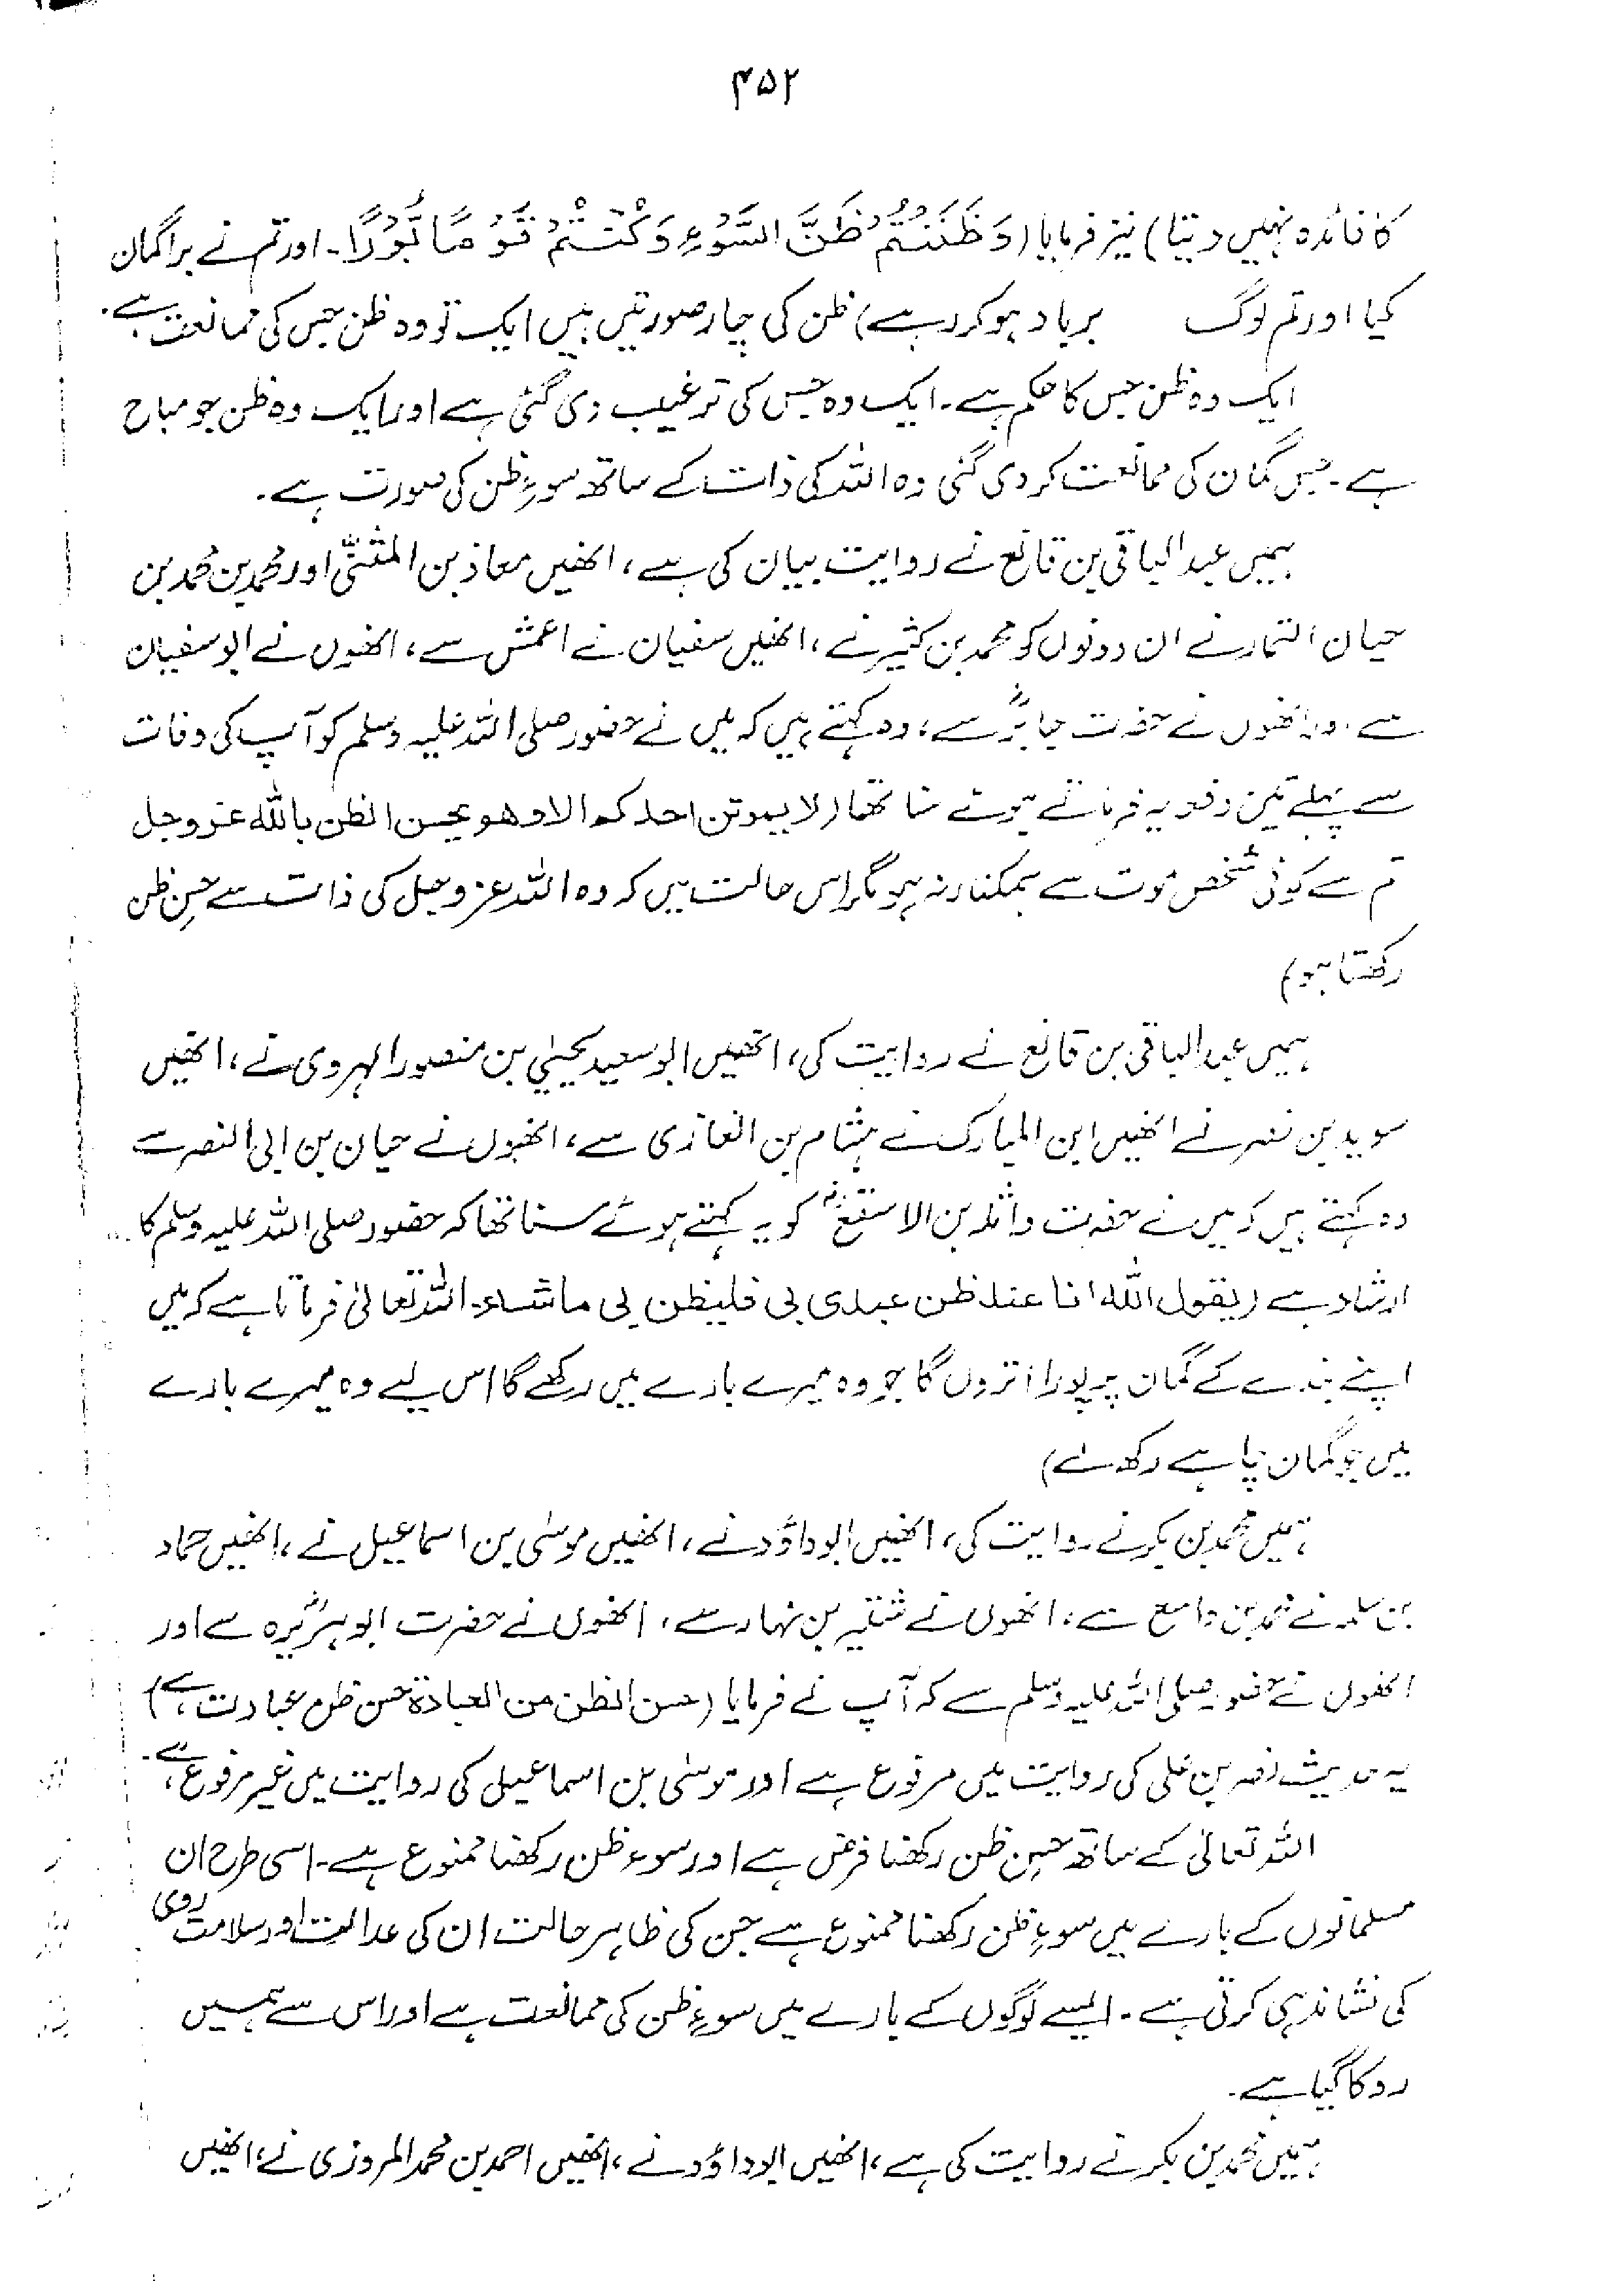 ۴۵۲
کا فائدہ نہیں دیتا) نیز فرمایا (وَظَنَنْتُمْ ظَنَّ السَّوْءِ وَكُنْتُمْ قَوْمًا بُوْرًا۔ اور تم نے برا گمان
کیا اور تم لوگ برباد ہو کر رہے) ظن کی چار صورتیں ہیں ایک تو وہ ظن جس کی ممانعت ہے۔
ایک وہ ظن جس کا حکم ہے۔ ایک وہ جس کی ترغیب دی گئی ہے اور ایک وہ ظن جو مباح
ہے۔ جس گمان کی ممانعت کر دی گئی وہ اللہ کی ذات کے ساتھ سوءِ ظن کی صورت ہے۔
ہمیں عبدالباقی بن قانع نے روایت بیان کی ہے، انھیں معاذ بن المثنیٰ اور محمد بن محمد بن
حیان التمار نے ان دونوں کو محمد بن کثیر نے، انھیں سفیان نے اعمش سے، انھوں نے ابوسفیان
سے اور انھوں نے حضرت جابرؓ سے، وہ کہتے ہیں کہ میں نے حضور صلی اللہ علیہ وسلم کو آپ کی وفات
سے پہلے تین دفعہ یہ فرماتے ہوئے سنا تھا (لا یموتن احدکم الا وھو یحسن الظن باللہ عزوجل
تم سے کوئی شخص موت سے ہمکنار نہ ہو مگر اس حالت میں کہ وہ اللہ عزوجل کی ذات سے حسنِ ظن
رکھتا ہو)
ہمیں عبدالباقی بن قانع نے روایت کی، انھیں ابوسعید یحییٰ بن منصور الہروی نے، انھیں
سوید بن نصر نے انھیں ابن المبارک نے ہشام بن الغازی سے، انھوں نے حیان بن ابی النصر سے
وہ کہتے ہیں کہ میں نے حضرت واثلہ بن الاسقعؓ کو یہ کہتے ہوئے سنا تھا کہ حضور صلی اللہ علیہ وسلم کا
ارشاد ہے (یقول اللہ انا عند ظن عبدی بی فلیظن بی ماشاء۔ اللہ تعالیٰ فرماتا ہے کہ میں
اپنے بندے کے گمان پر پورا اتروں گا جو وہ میرے بارے میں رکھے گا اس لیے وہ میرے بارے
میں جو گمان چاہے رکھ لے)
ہمیں محمد بن بکر نے روایت کی، انھیں ابوداؤد نے، انھیں موسیٰ بن اسماعیل نے، انھیں حماد
بن سلمہ نے محمد بن واسع سے، انھوں نے شتیر بن نہار سے، انھوں نے حضرت ابوہریرہؓ سے اور
انھوں نے حضور صلی اللہ علیہ وسلم سے کہ آپ نے فرمایا (حسن الظن من العبادۃ حسن ظن عبادت ہے)
یہ حدیث نصر بن علی کی روایت میں مرفوع ہے اور موسیٰ بن اسماعیل کی روایت میں غیر مرفوع ہے۔
اللہ تعالیٰ کے ساتھ حسنِ ظن رکھنا فرض ہے اور سوء ظن رکھنا ممنوع ہے۔ اسی طرح ان
مسلمانوں کے بارے میں سوءِ ظن رکھنا ممنوع ہے جن کی ظاہر حالت ان کی عدالت اور سلامت روی
کی نشاندہی کرتی ہے۔ ایسے لوگوں کے بارے میں سوءِ ظن کی ممانعت ہے اور اس سے ہمیں
روکا گیا ہے۔
ہمیں محمد بن بکر نے روایت کی ہے، انھیں ابوداؤد نے، انھیں احمد بن محمد المروزی نے، انھیں